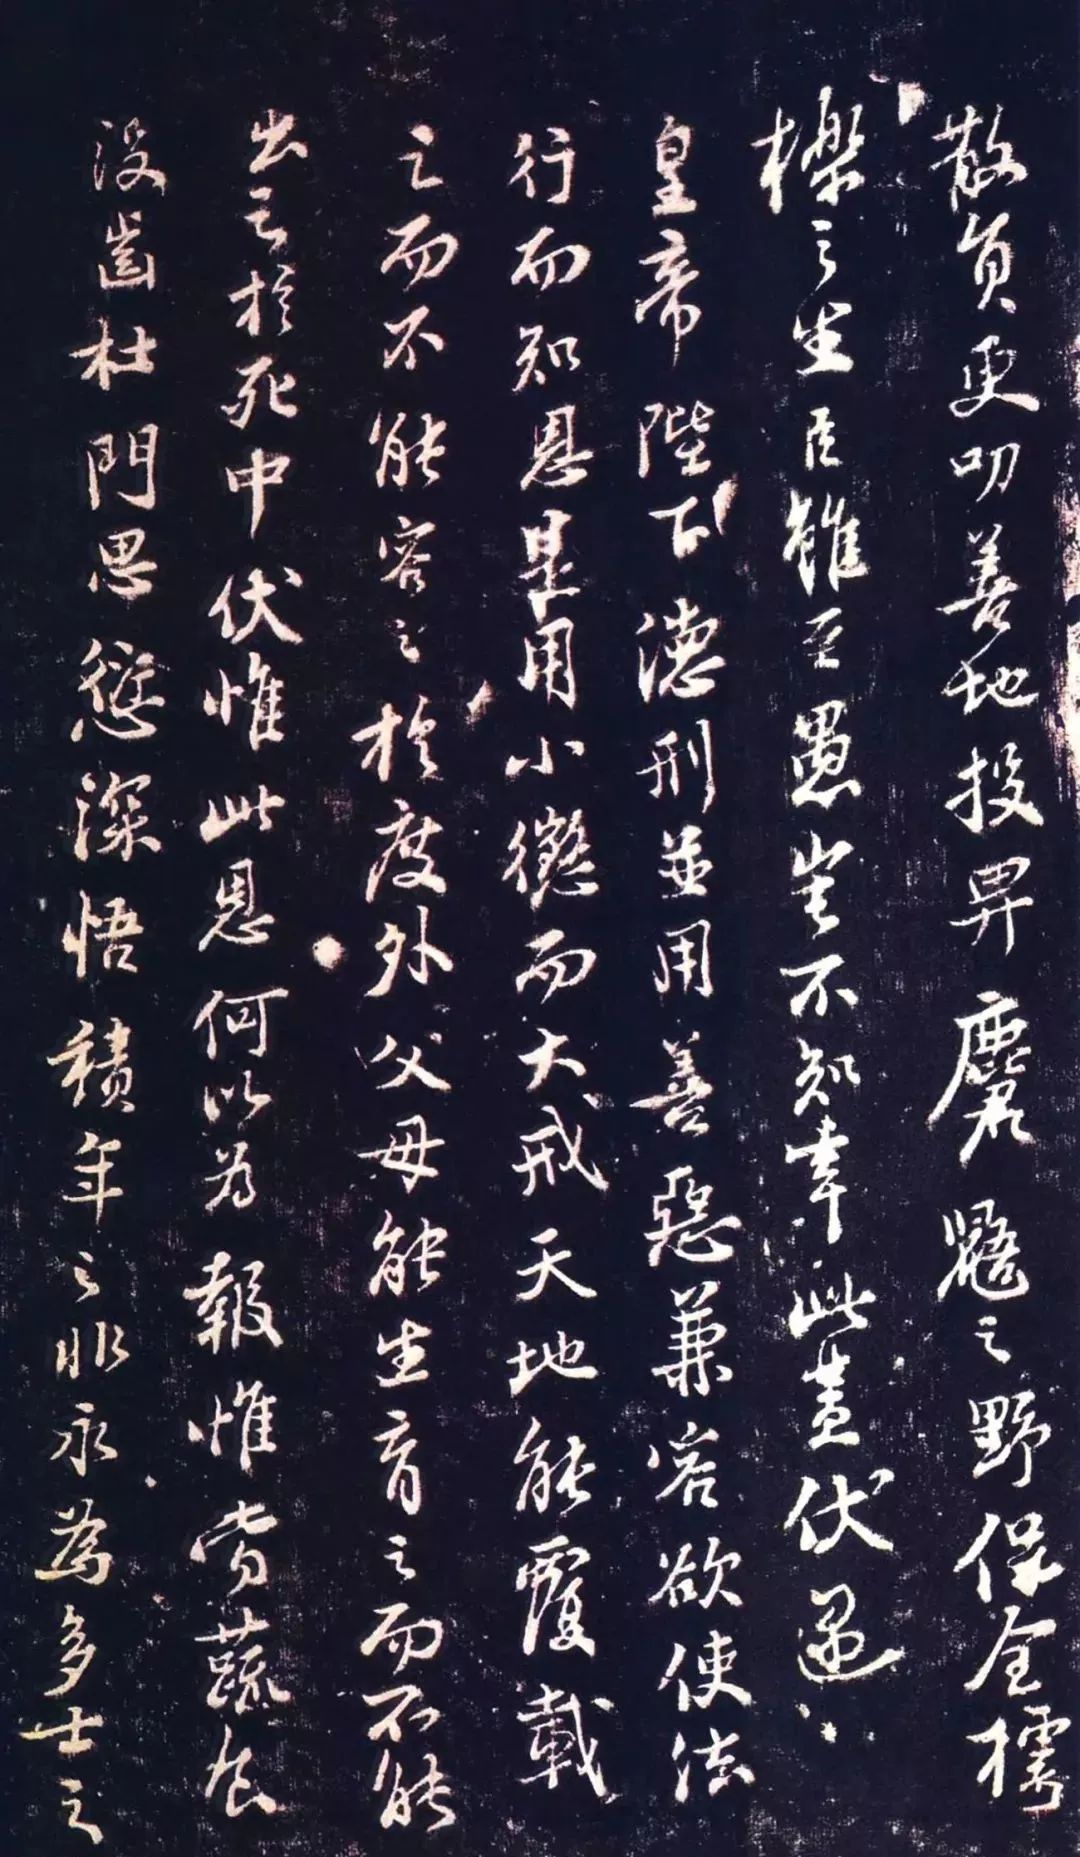 散員更叨善地投畀麏鼯之野保全樗
櫟之生臣雖至愚豈不知幸此蓋伏遇
皇帝陛下德刑並用善惡兼容欲使法
行而知恩是用小懲而大戒天地能覆載
之而不能容之於度外父母能生育之而不能
出之於死中伏惟此恩何以為報惟當蔬食
没齒杜門思愆深悟積年之非永為多士之